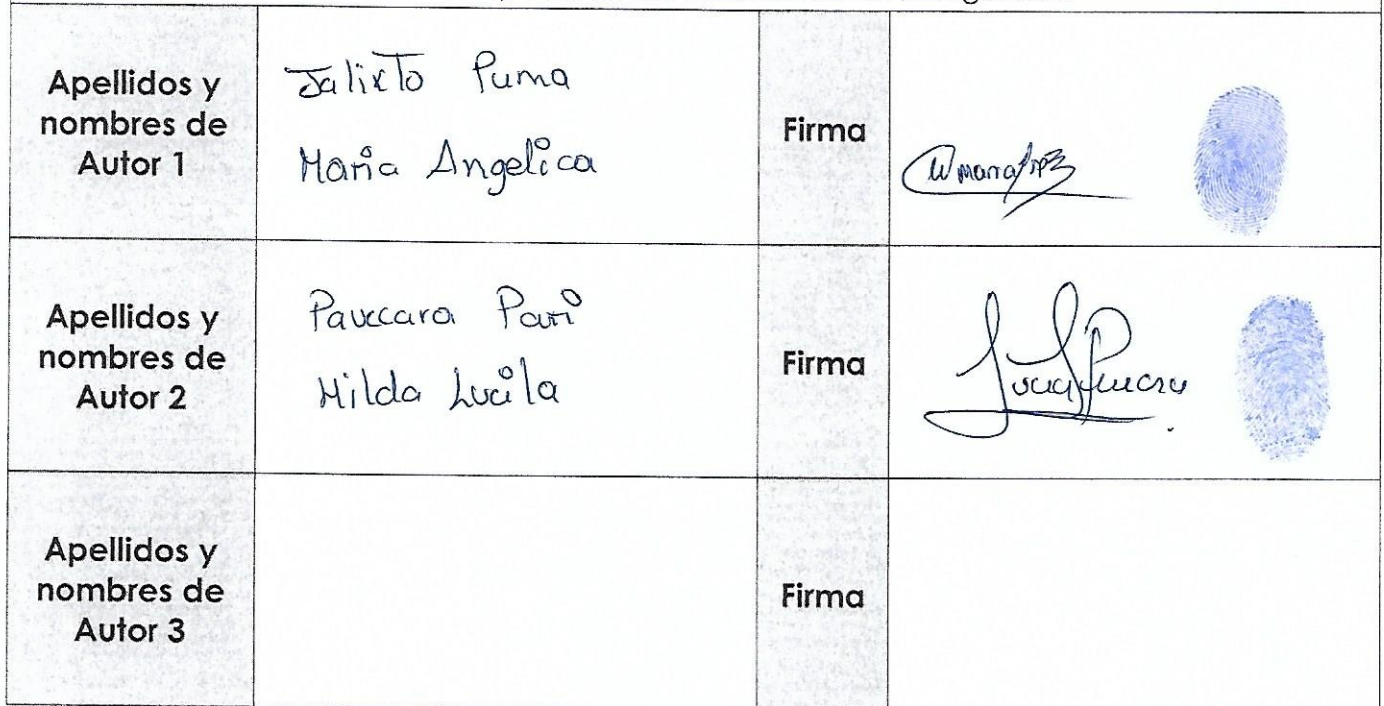 Apellidos y
nombres de
Autor 1
Jalixto Puma
Maria Angelica
Firma
Apellidos y
nombres de
Autor 2
Pauccara Pari
Hilda Lucila
Firma
Apellidos y
nombres de
Autor 3
Firma